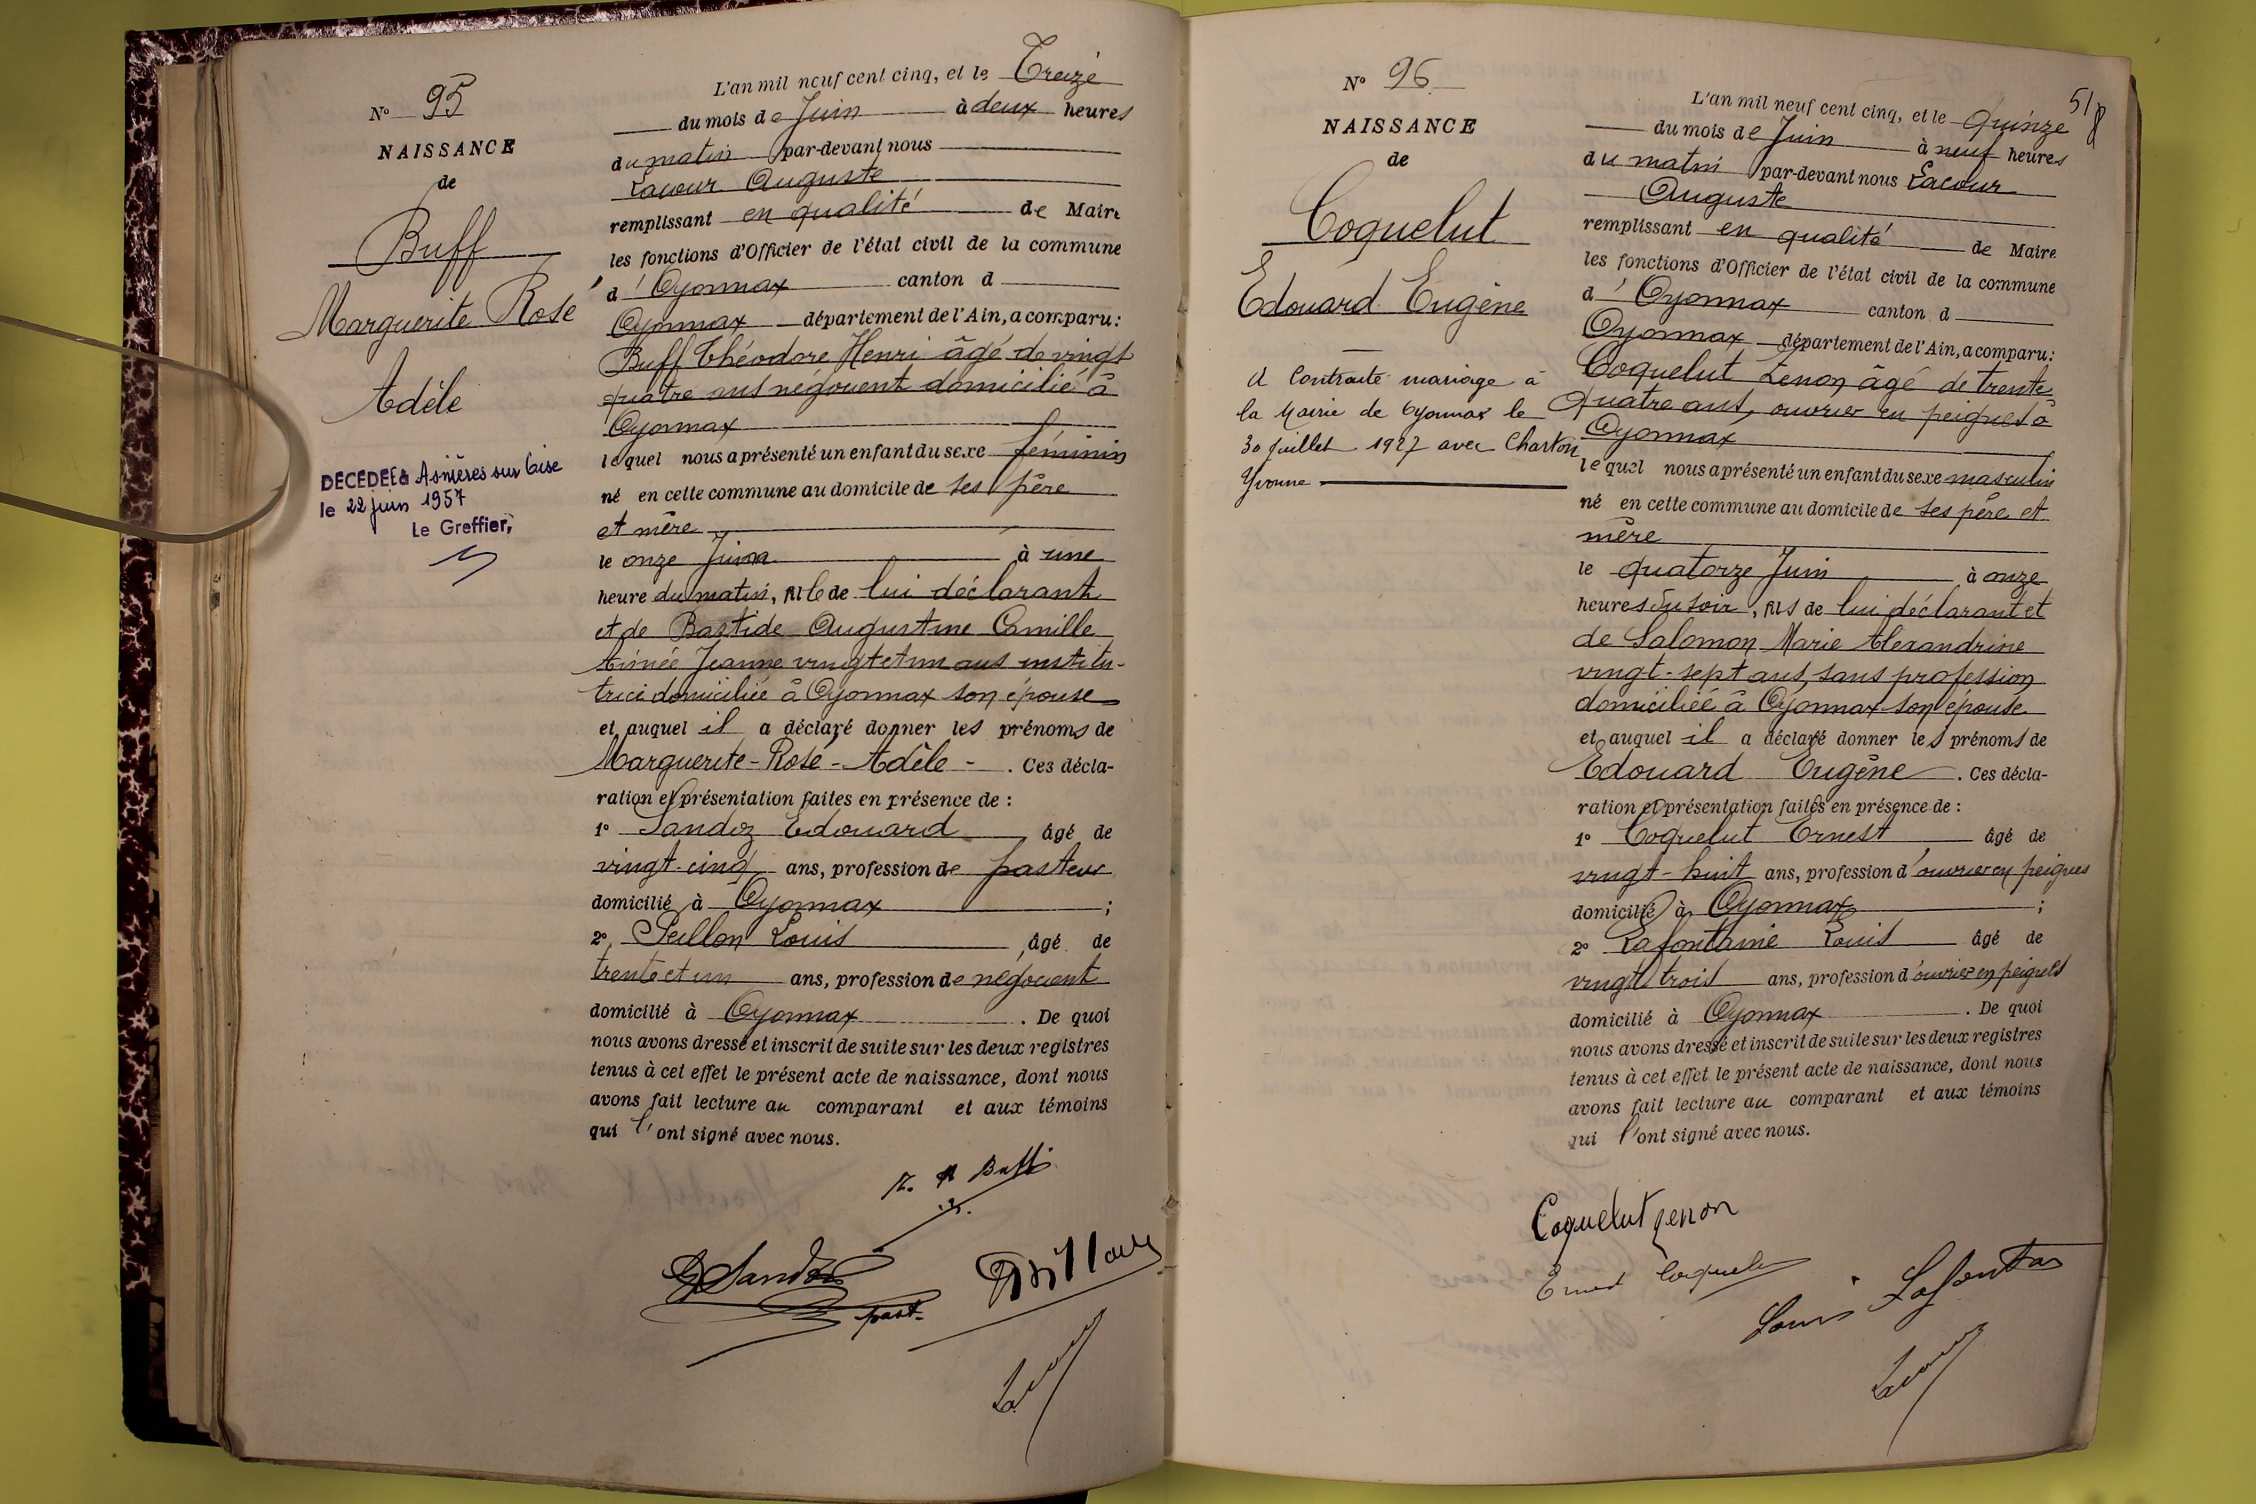 N° 95
NAISSANCE
de
Buff
Marguerite Rose
Adèle
DÉCÉDÉE à Asnières sur Oise
le 22 juin 1957
Le Greffier,
L'an mil neuf cent cinq, et le Treize
du mois de Juin à deux heures
du matin par-devant nous
Lacour Auguste
remplissant en qualité de Maire
les fonctions d'Officier de l'état civil de la commune
d'Oyonnax canton d
Oyonnax département de l'Ain, a comparu:
Buff Théodore Henri âgé de vingt
quatre ans négociant domicilié à
Oyonnax
lequel nous a présenté un enfant du sexe féminin
né en cette commune au domicile de ses père
et mère
le onze Juin à une
heure du matin, fille de lui déclarant
et de Bastide Augustine Camille
Aimée Jeanne vingt et un ans institu-
trice domiciliée à Oyonnax son épouse
et auquel il a déclaré donner les prénoms de
Marguerite-Rose-Adèle-. Ces décla-
ration et présentation faites en présence de :
1° Sandoz Edouard âgé de
vingt-cinq ans, profession de pasteur
domicilié à Oyonnax ;
2° Seillon Louis âgé de
trente et un ans, profession de négociant
domicilié à Oyonnax . De quoi
nous avons dressé et inscrit de suite sur les deux registres
tenus à cet effet le présent acte de naissance, dont nous
avons fait lecture au comparant et aux témoins
qui l'ont signé avec nous.
Buff
E Sandoz
past.
Lacour
51
N° 96
NAISSANCE
de
Coquelut
Edouard Eugène
A Contracté mariage à
la Mairie de Oyonnax le
30 Juillet 1927 avec Charton
Yvonne
L'an mil neuf cent cinq, et le quinze
du mois de Juin à neuf heures
du matin par-devant nous Lacour
Auguste
remplissant en qualité de Maire
les fonctions d'Officier de l'état civil de la commune
d'Oyonnax canton d
Oyonnax département de l'Ain, a comparu:
Coquelut Zenon âgé de trente
quatre ans, ouvrier en peignes à
Oyonnax
lequel nous a présenté un enfant du sexe masculin
né en cette commune au domicile de ses père et
mère
le quatorze Juin à onze
heures du soir, fils de lui déclarant et
de Salomon Marie Alexandrine
vingt-sept ans, sans profession
domiciliée à Oyonnax son épouse
et auquel il a déclaré donner les prénoms de
Edouard Eugène . Ces décla-
ration et présentation faites en présence de :
1° Coquelut Ernest âgé de
vingt-huit ans, profession d'ouvrier en peignes
domicilié à Oyonnax ;
2° Lafontaine Louis âgé de
vingt trois ans, profession d'ouvrier en peignes
domicilié à Oyonnax . De quoi
nous avons dressé et inscrit de suite sur les deux registres
tenus à cet effet le présent acte de naissance, dont nous
avons fait lecture au comparant et aux témoins
qui l'ont signé avec nous.
Coquelut zenon
Ernest Coquelut
Louis Lafontai
Lacour